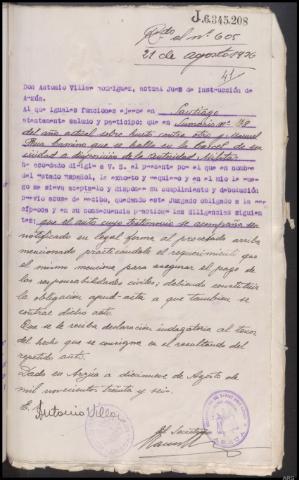 J.6.345.208
Rdo el nº 605
21 de agosto 1936
41
Don Antonio Villar Rodríguez, actual Juez de Instrucción de
Arzúa.
Al que iguales funciones ejerce en Santiago
atentamente saludo y participo: que en Sumario nº
del año actual sobre hurto contra otro y Manuel
que se halla en la Carcel de esa
ciudad a disposición de la autoridad Militar
he acordado dirigir a V. S. el presente por el que en nombre
del Estado español, le exhorto y requiero y en el mio le rue-
go se sirva aceptarlo y disponer su cumplimiento y debolución
previo acuse de recibo, quedando este Juzgado obligado a la re-
cíproca y en su consecuencia practicar las diligencias siguien-
tes: que el auto cuyo testimonio se acompaña sea
notificado en legal forma al procesado arriba
mencionado practicandole el requerimiento que
el mismo menciona para asegurar el pago de
las responsabilidades civiles; debiendo constituir
la obligación apud-acta a que tambien se
contrae dicho auto.
Que se le reciba declaración indagatoria al tenor
del hecho que se consigna en el resultando del
repetido auto.
Dado en Arzúa a diecinueve de Agosto de
mil novecientos treinta y seis.
E. Antonio Villar
El Secretario
ARZUA
ARG